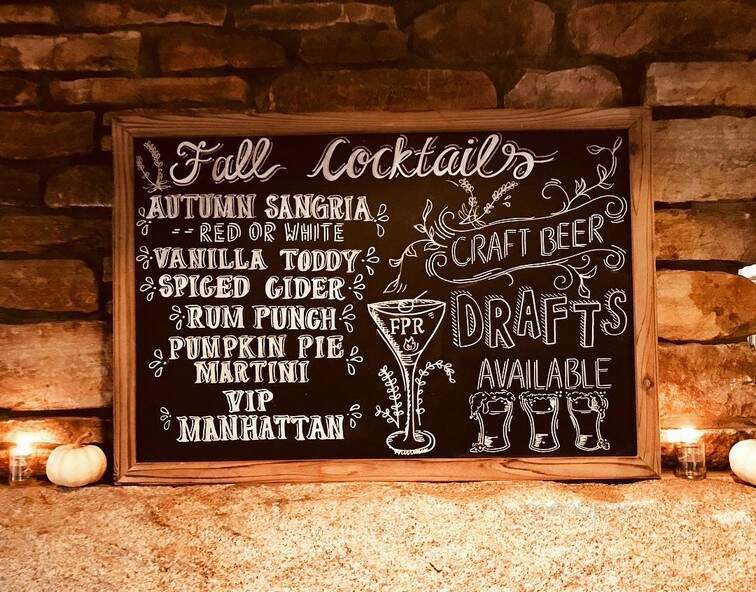 Fall Cocktails
AUTUMN SANGRIA
-- RED OR WHITE
VANILLA TODDY
SPICED CIDER
RUM PUNCH
PUMPKIN PIE
MARTINI
VIP
MANHATTAN
CRAFT BEER
DRAFTS
AVAILABLE
FPR